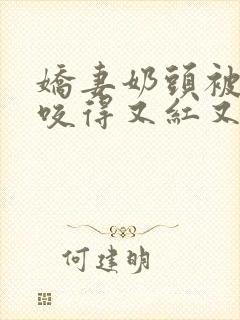 嬌妻奶頭被
咬得又紅又
何建明